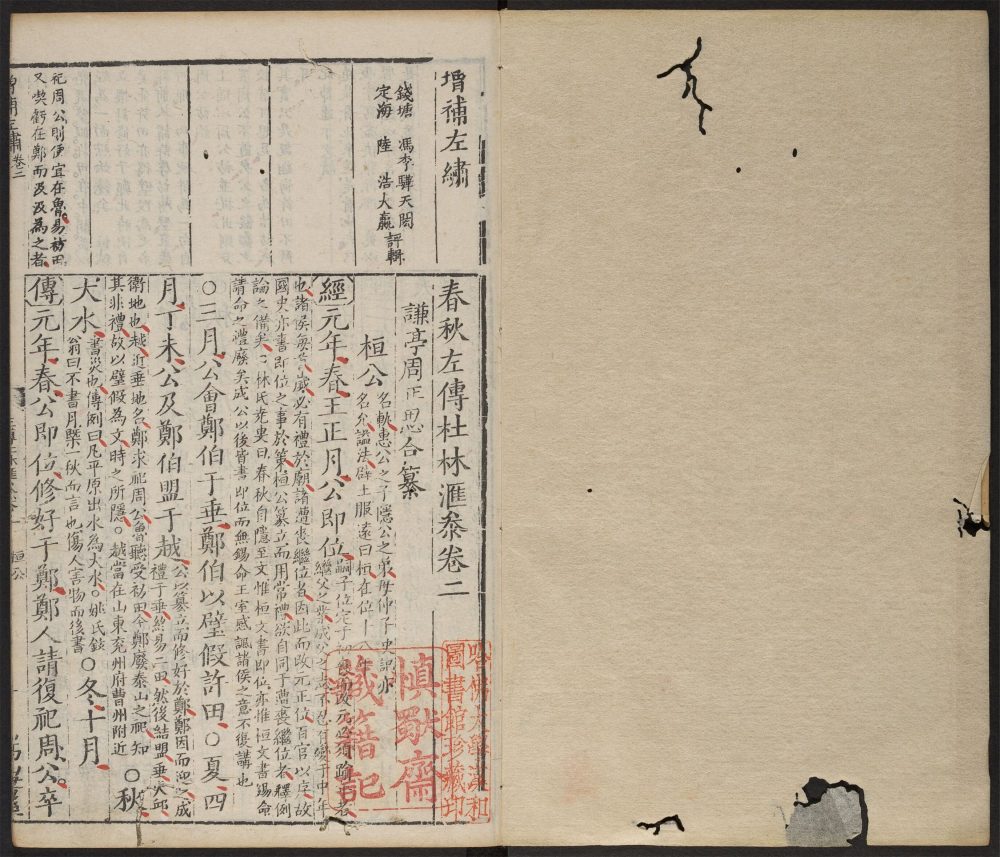 增補左繡
錢塘 馮李驊天閑
定海 陸 浩大瀛 評輯
祀周公則便宜在魯易祊田
又喫虧任鄭而汲汲為之者
春秋左傳杜林滙叅卷二
謙亭周正思合纂
桓公 名軌惠公之子隱公之弟母仲子史記亦
名允諡法辟土服遠曰桓在位十八年
經元年春王正月公即位
也諸侯每首歲必有禮於廟諸遭喪繼位者因此而改元正位百官以序故
國史亦書即位之事於策桓公篡立而用常禮欲自同于遭喪繼位者釋例
論之備矣 林氏堯叟曰春秋自隱至文惟桓文書即位亦惟桓文書錫命
請命之禮廢矣成公以後皆書即位而無錫命王室感諷諸侯之意不復講也
○三月公會鄭伯于垂鄭伯以璧假許田○夏四
月丁未公及鄭伯盟于越 公以篡立而修好於鄭鄭因而迎之以成
禮于垂終易二田然後結盟垂犬邱
衛地也越近垂地名鄭求祀周公魯聽受祊田令鄭廢泰山之祀知
其非禮故以璧假為文時之所隱○越當在山東兖州府曹州附近 ○秋
大水 書災也傳例曰凡平原出水為大水○姚氏
翁曰不書月槩一秋而言也傷人害物而後書 ○冬十月
傳元年春公即位修好于鄭鄭人請復祀周公卒
桓公
慎獻齋
藏籍記
哈佛大學漢和
圖書館珍藏印